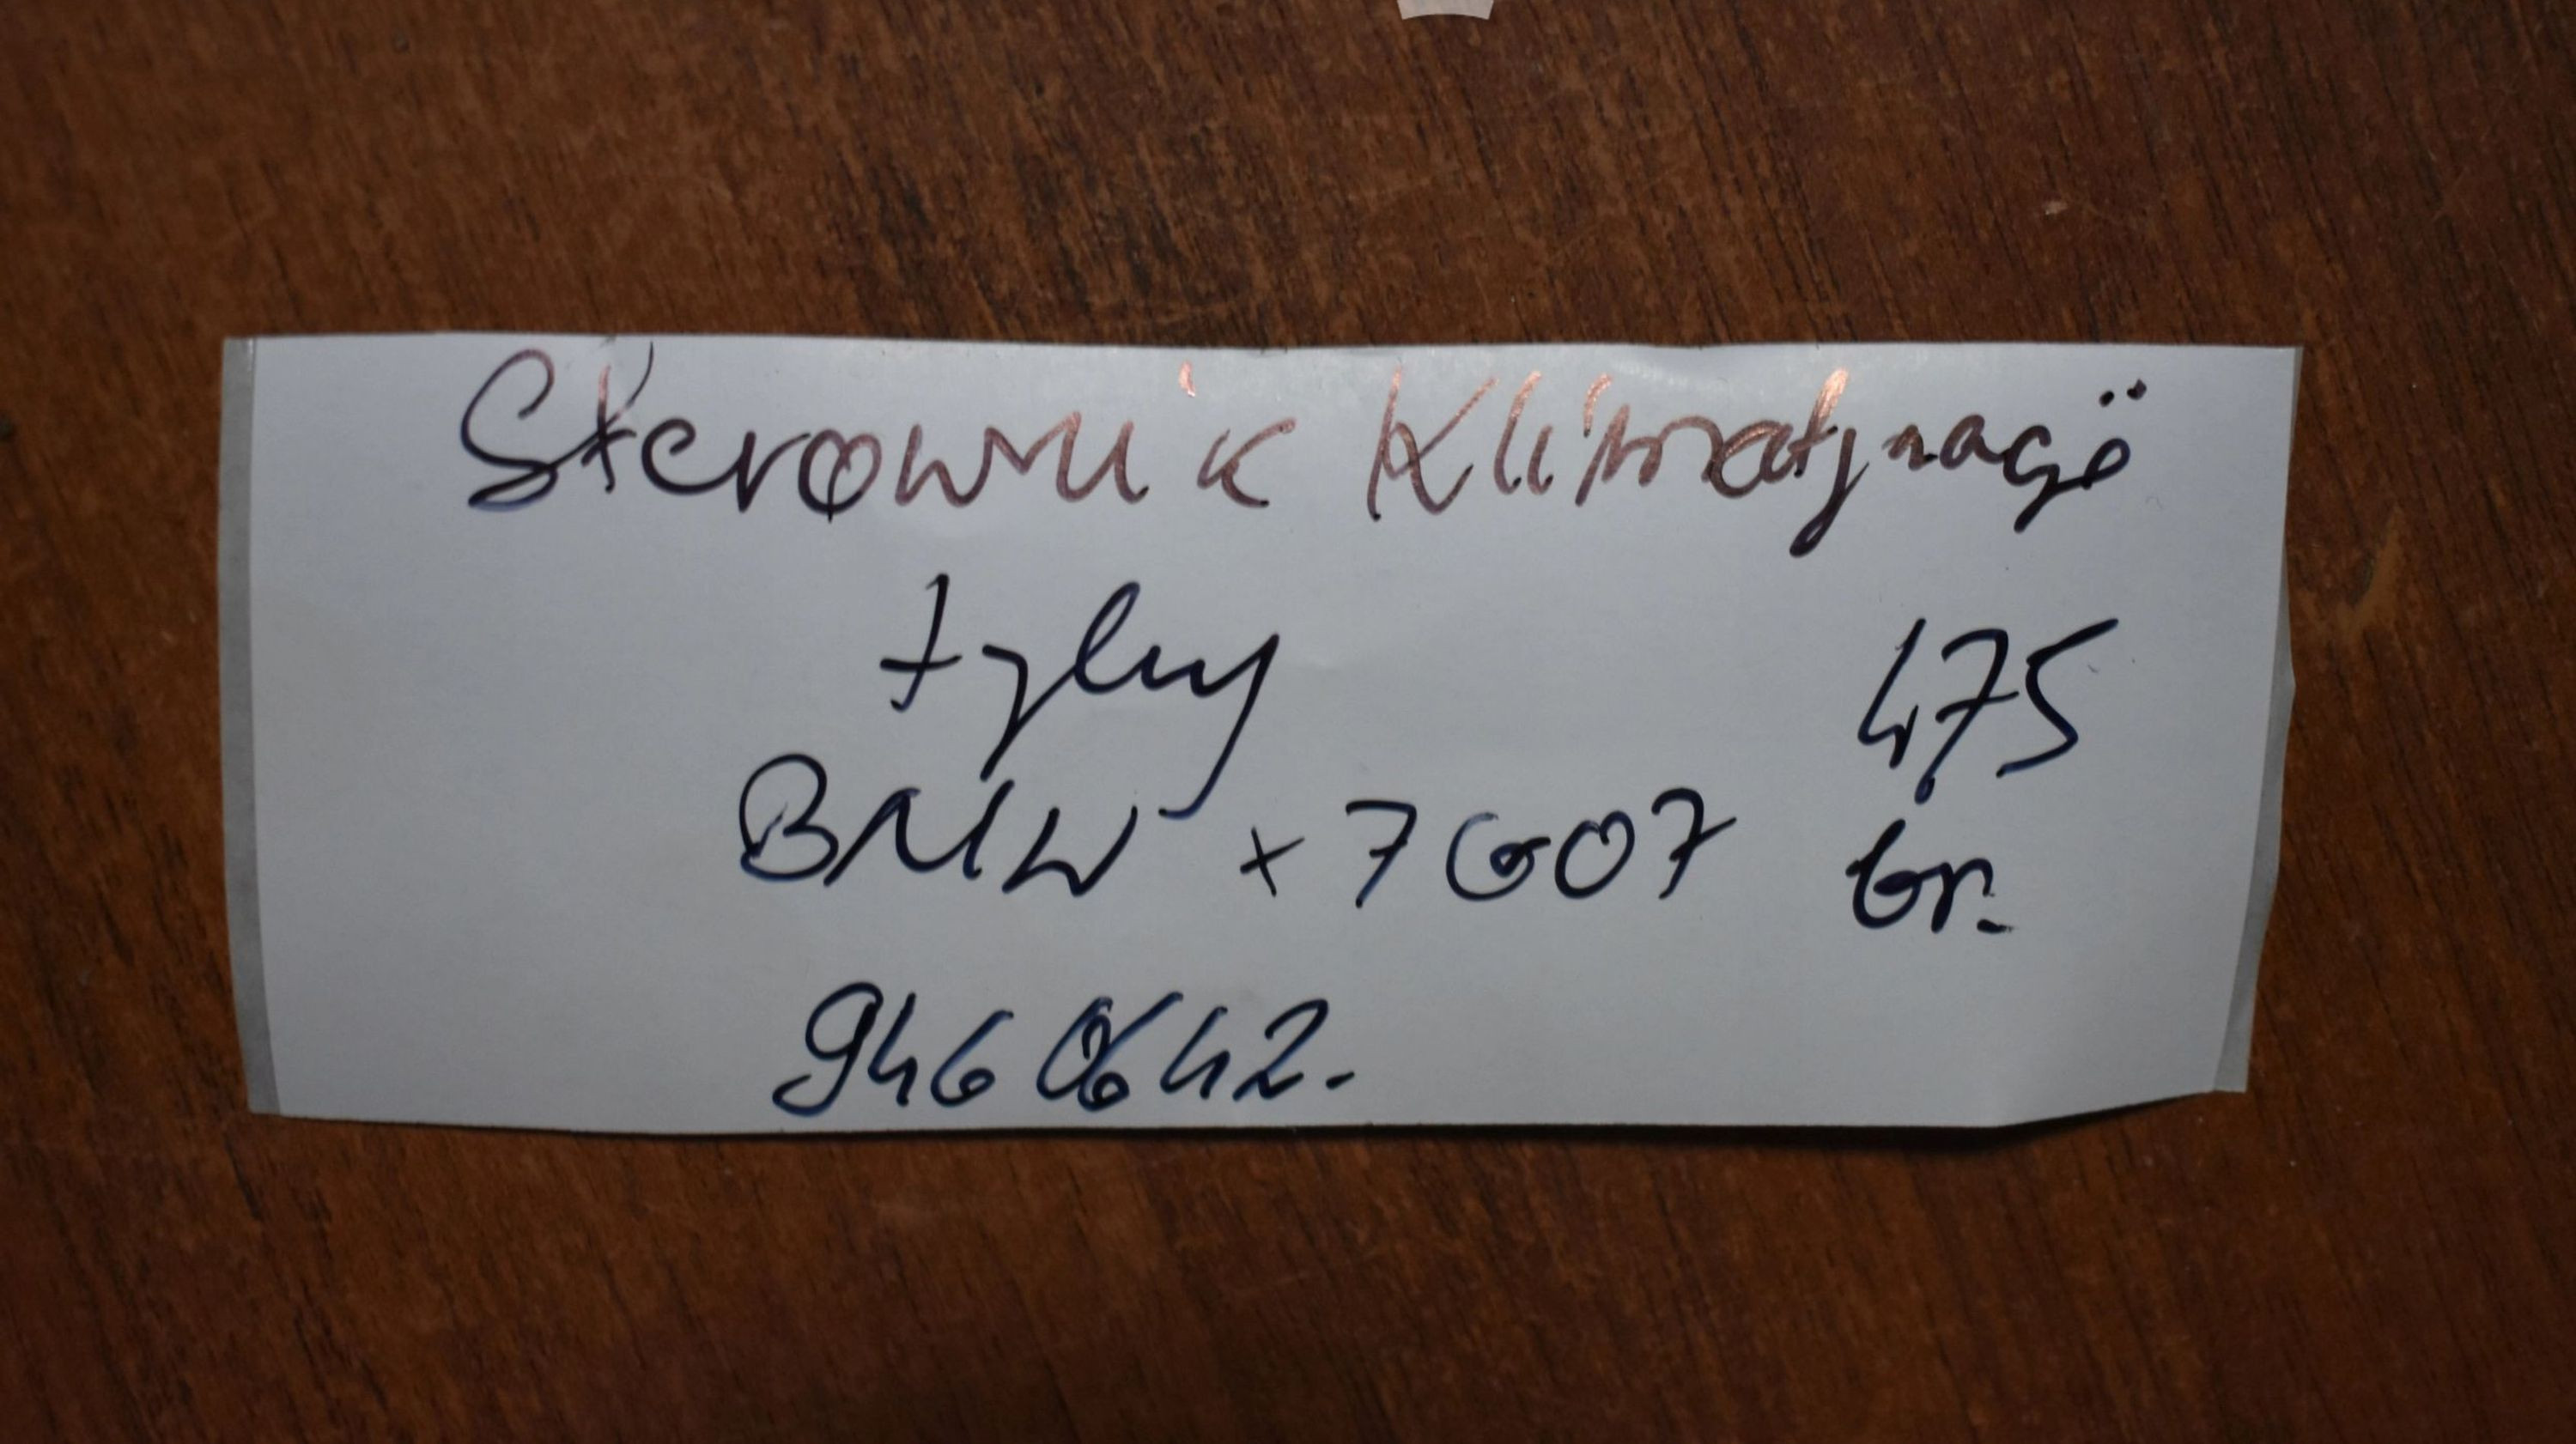 Sterownik Klimatyzacji
tylny
475
BMW x7 G07
br.
9460642.